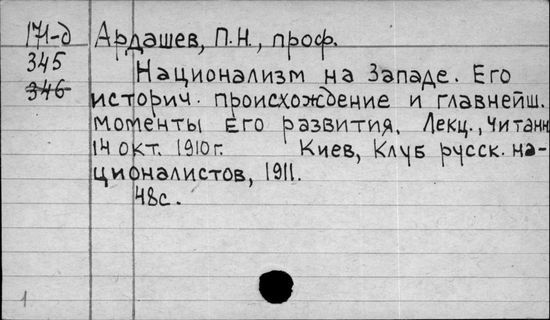 171-д Ардашев, П.Н., проф.
345
346
Национализм на Западе. Его
историч. происхождение и главнейш.
моменты его развития. Лекц., читанн
14 окт. 1910г. Киев, Клуб русск. на-
ционалистов, 1911.
48с.
1